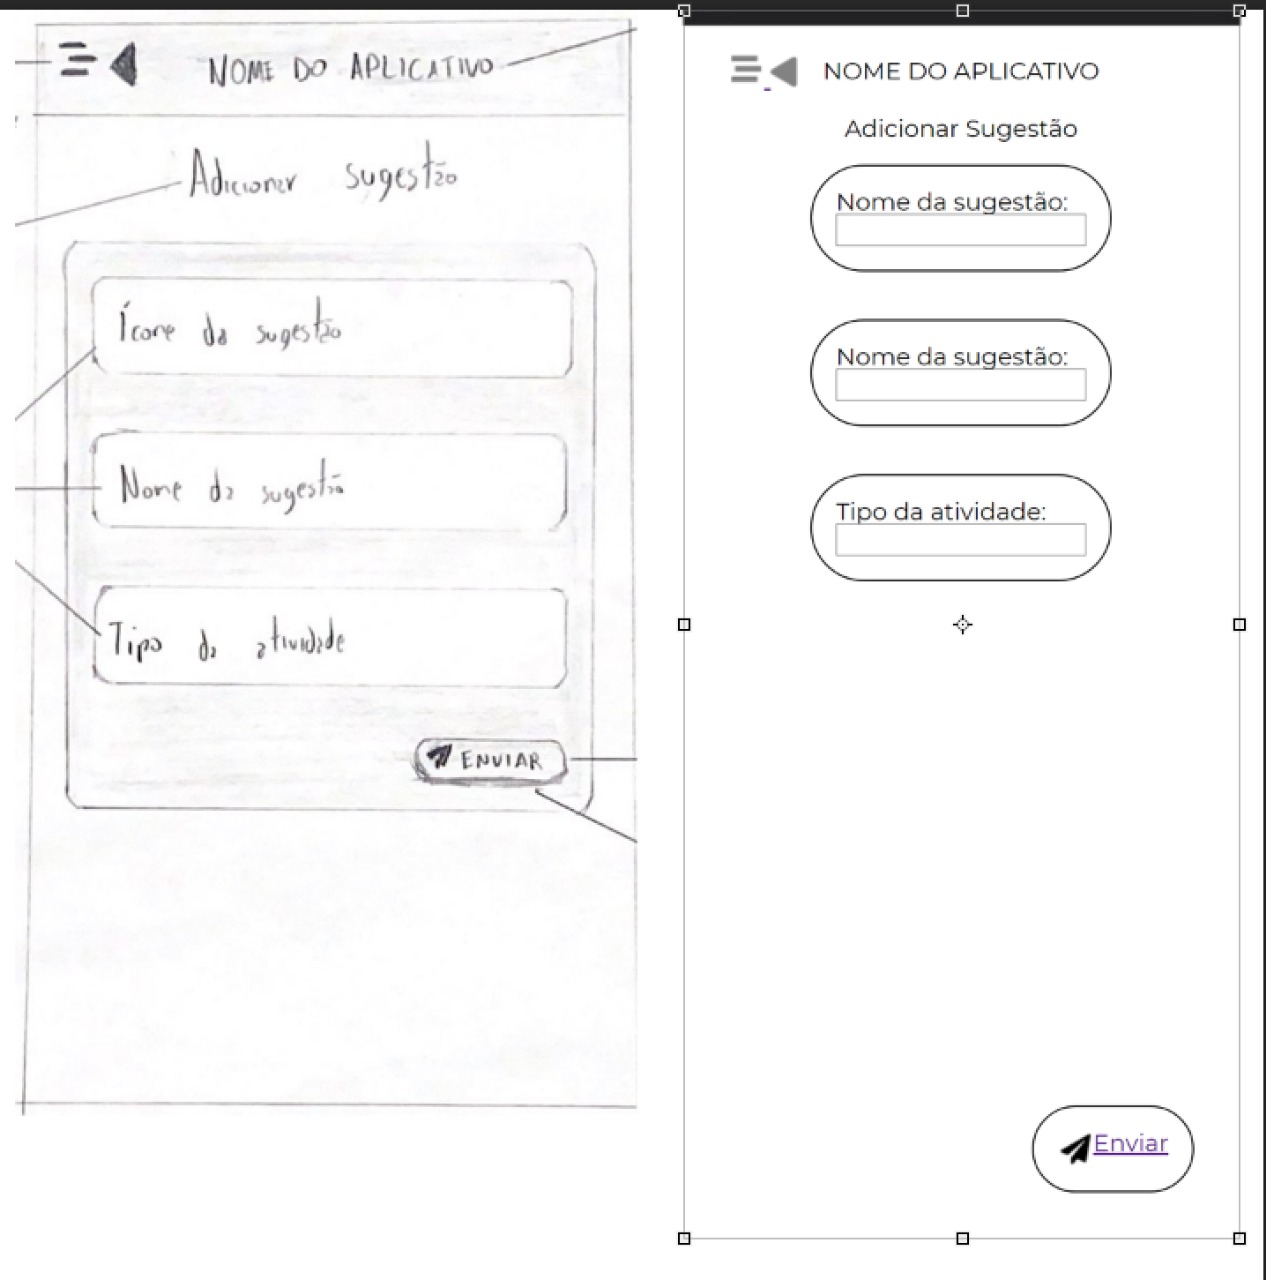 NOME DO APLICATIVO
Adicionar sugestão
Ícone da sugestão
Nome da sugestão
Tipo da atividade
ENVIAR
NOME DO APLICATIVO
Adicionar Sugestão
Nome da sugestão:
Nome da sugestão:
Tipo da atividade:
Enviar